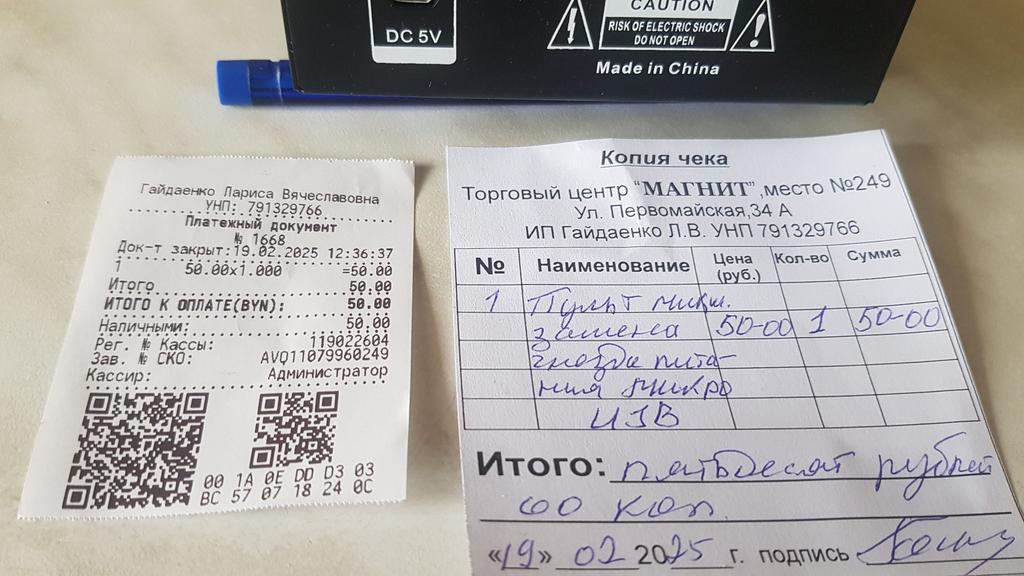 DC 5V
CAUTION
RISK OF ELECTRIC SHOCK
DO NOT OPEN
Made in China
Гайдаенко Лариса Вячеславовна
УНП: 791329766
Платежный документ
№ 1668
Док-т закрыт:19.02.2025 12:36:37
1 50.00x1.000 =50.00
Итого 50.00
ИТОГО К ОПЛАТЕ(BYN): 50.00
Наличными: 50.00
Рег. № Кассы: 119022604
Зав. № СКО: AVQ11079960249
Кассир: Администратор
00 1A 0E DD D3 03
BC 57 07 18 24 0C
Копия чека
Торговый центр "МАГНИТ",место №249
Ул. Первомайская,34 А
ИП Гайдаенко Л.В. УНП 791329766
№ Наименование Цена (руб.) Кол-во Сумма
1 Пульт микш.
замена 50-00 1 50-00
гнезда пита-
ния микро
USB
Итого: пятьдесят рублей
00 коп.
«19» 02 2025 г. подпись